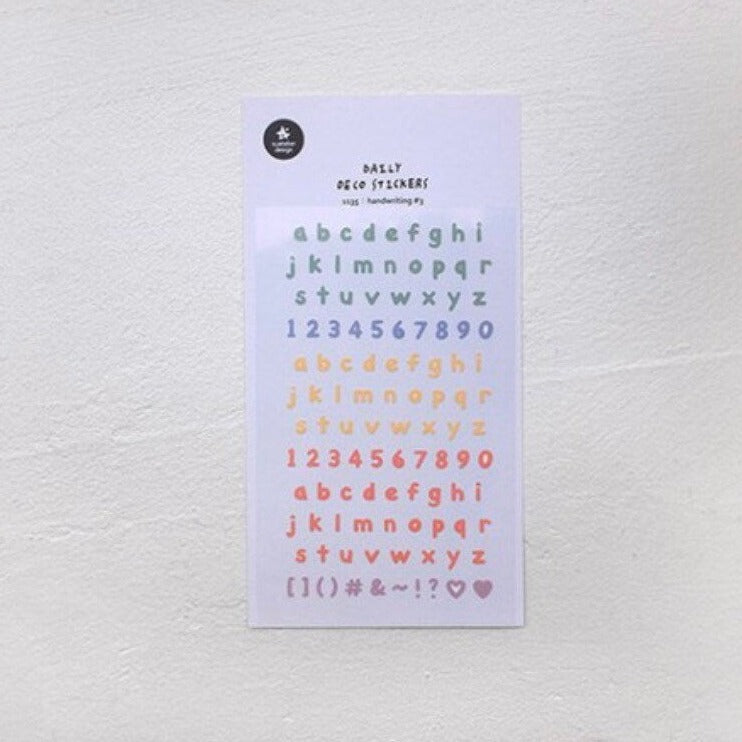 suatelier
design
DAILY
DECO STICKERS
1135 | handwriting #3
a b c d e f g h i
j k l m n o p q r
s t u v w x y z
1 2 3 4 5 6 7 8 9 0
a b c d e f g h i
j k l m n o p q r
s t u v w x y z
1 2 3 4 5 6 7 8 9 0
a b c d e f g h i
j k l m n o p q r
s t u v w x y z
[ ] ( ) # & ~ ! ? ♡ ♥